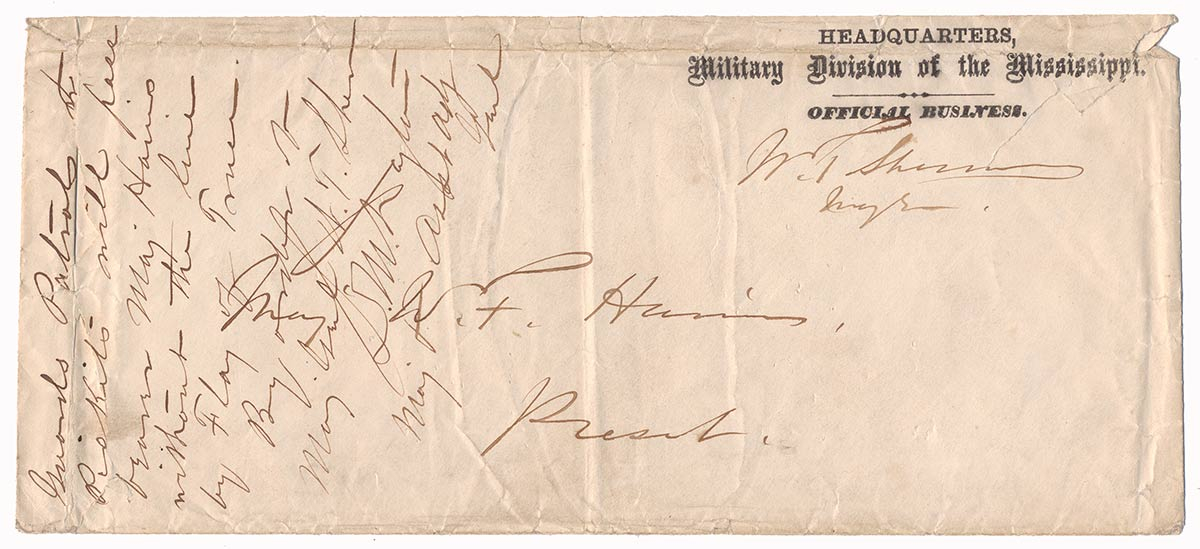 HEADQUARTERS,
Military Division of the Mississippi.
OFFICIAL BUSINESS.
W. T. Sherman
Maj Genl.
Maj W. F. Harris,
Present.
Guards Patrols &
Pickets will pass
Maj Harris
without the line
by Flag of Truce
By order of
Maj. Genl W. T. Sherman
L. M. Dayton
Maj & Asst Adjt
Genl